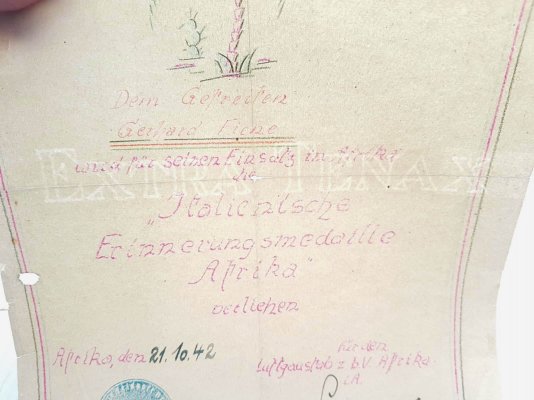 Dem Gefreiten
Gerhard Ficke
wird für seinen Einsatz in Afrika
die
„Italienische
Erinnerungsmedaille
Afrika"
verliehen
Afrika, den 21.10.42
Für den
Luftgaustab z.b.V. Afrika
i.A.
EXTRA TENAX